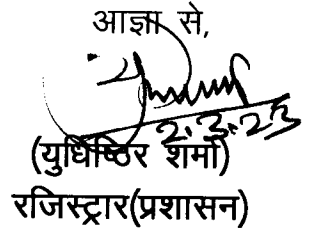 आज्ञा से,
2.3.23
(युधिष्ठिर शर्मा)
रजिस्ट्रार(प्रशासन)